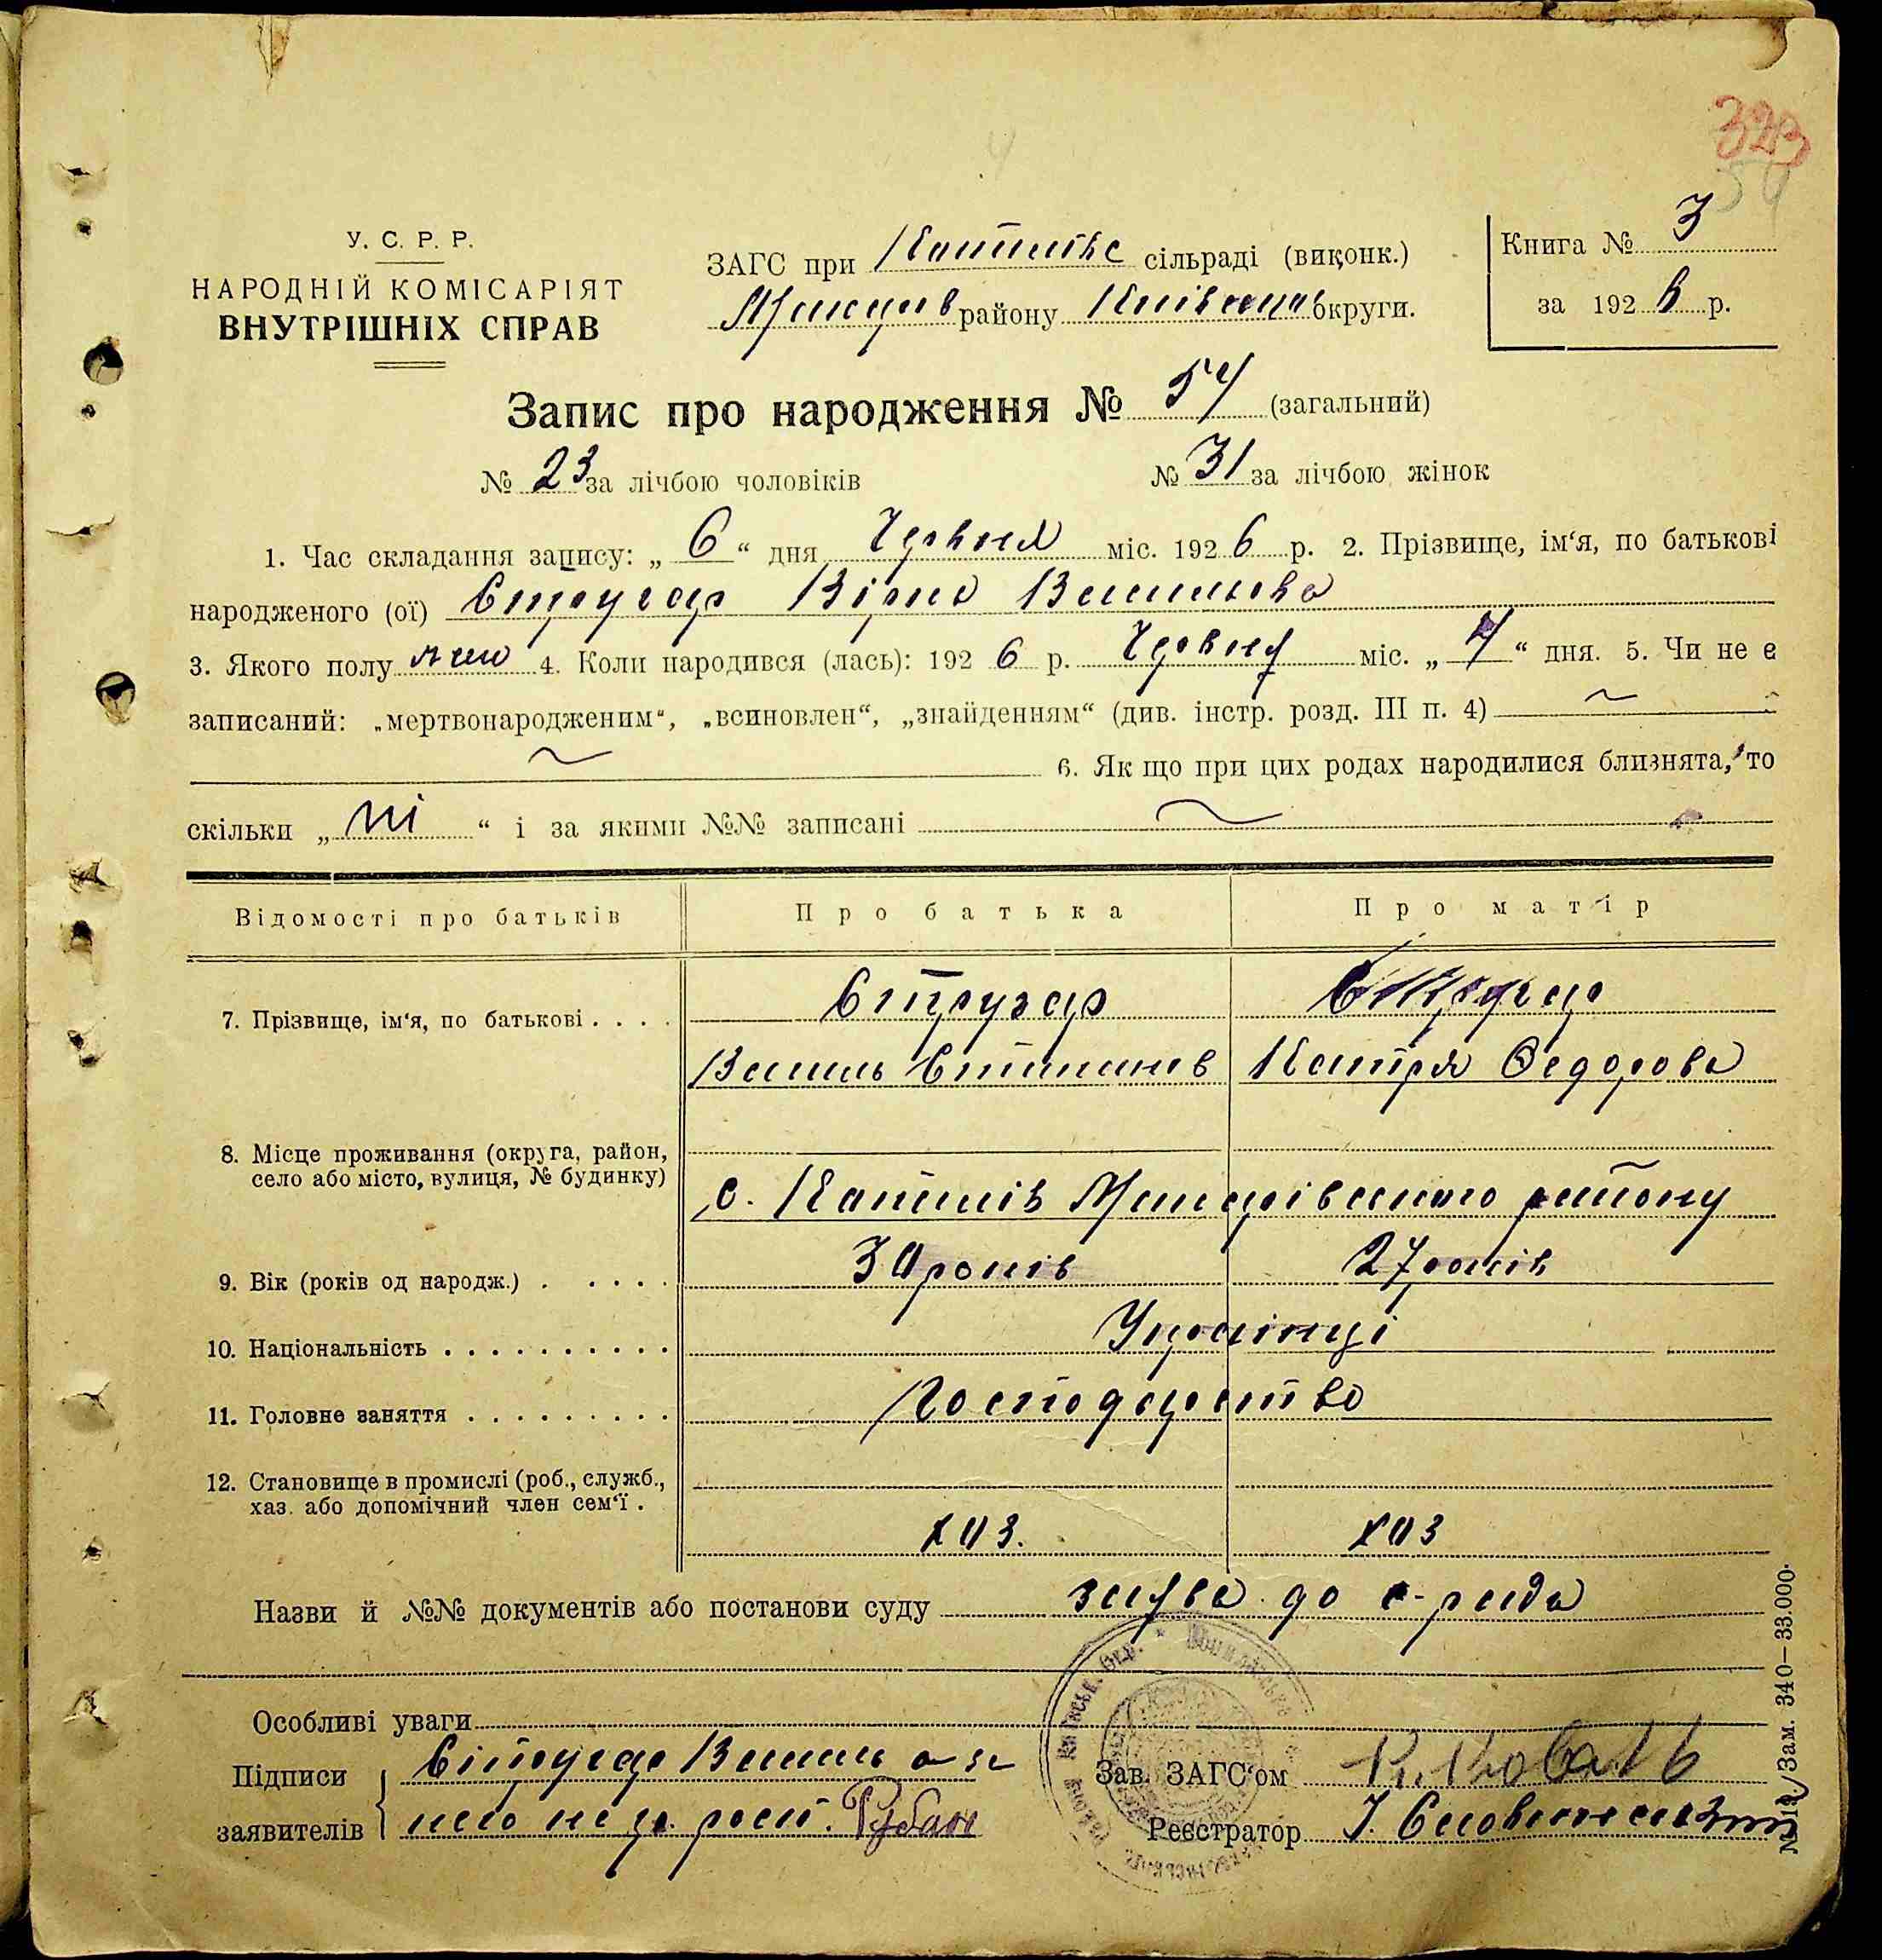 323
54
У. С. Р. Р.
НАРОДНІЙ КОМІСАРІЯТ
ВНУТРІШНІХ СПРАВ
ЗАГС при сільраді (виконк.)
району округи.
Книга № 3
за 1926 р.
Запис про народження № 54 (загальний)
№ 23 за лічбою чоловіків № 31 за лічбою жінок
1. Час складання запису: „ 6 “ дня Червня міс. 1926 р. 2. Прізвище, ім‘я, по батькові
народженого (ої) Стругар Віра Васильова
3. Якого полу жен 4. Коли народився (лась): 1926 р. Червня міс. „ 4 “ дня. 5. Чи не є
записаний: „мертвонародженим“, „всиновлен“, „знайденням“ (див. інстр. розд. III п. 4) ~
~ 6. Як що при цих родах народилися близнята, то
скільки „ ні “ і за якими №№ записані ~
Відомості про батьків Про батька Про матір
7. Прізвище, ім‘я, по батькові . . . . Стругар Стругар
Василь Степанів Катря Федорова
8. Місце проживання (округа, район,
село або місто, вулиця, № будинку)
с. Макарівського району
9. Вік (років од народж.) . . . . . 30 років 27 років
10. Національність . . . . . . . . . . Українці
11. Головне заняття . . . . . . . . . Господарство
12. Становище в промислі (роб., служб.,
хаз. або допомічний член сем‘ї .
хаз. хаз
Назви й №№ документів або постанови суду заява до с-рада
Особливі уваги
Підписи Стругар Василь а за
заявителів його негр. росп. Рубан
Зав. ЗАГС‘ом К. Коваль
Реєстратор І.
Зам. 340—33.000.